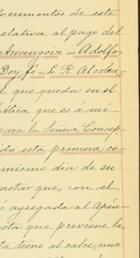 documentos de este
relativa al pago del
Arrangoiz - Adolfo
Doy fé - D. R. Alcolea
l que queda en el
ública que es á mi
para la Señora Concep-
da está primera co-
mismo día de su
que, con el
agregada al Apén-
nota que previene la
ta tiene al calce, una